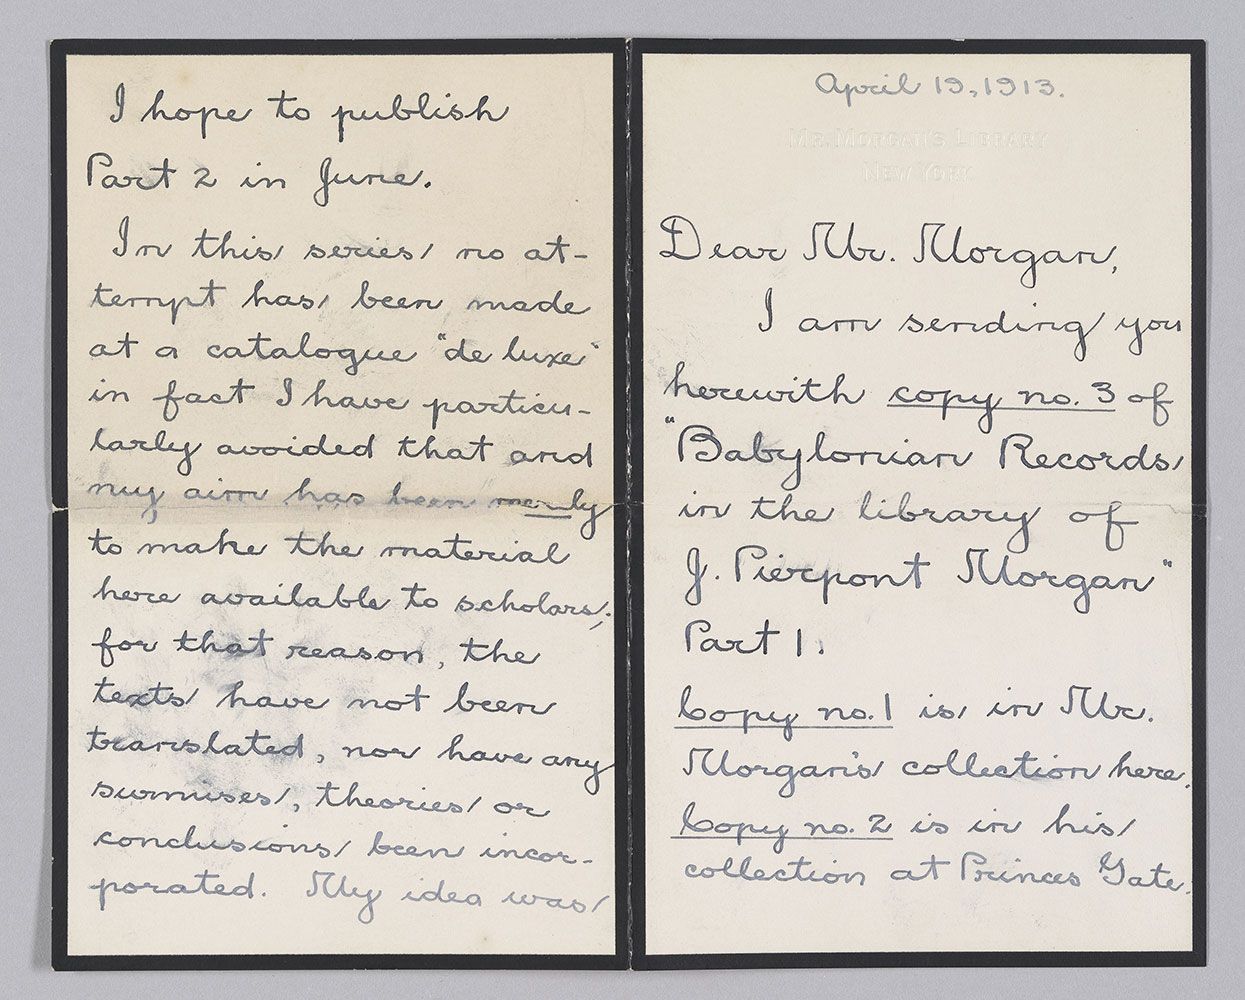 April 19, 1913.
MR. MORGAN'S LIBRARY
NEW YORK
Dear Mr. Morgan,
I am sending you
herewith copy no. 3 of
"Babylonian Records
in the library of
J. Pierpont Morgan"
Part 1.
Copy no. 1 is in Mr.
Morgan's collection here.
Copy no. 2 is in his
collection at Princes Gate.
I hope to publish
Part 2 in June.
In this series no at-
tempt has been made
at a catalogue "de luxe"
in fact I have particu-
larly avoided that and
my aim has been merely
to make the material
here available to scholars;
for that reason, the
texts have not been
translated, nor have any
surmises, theories or
conclusions been incor-
porated. My idea was